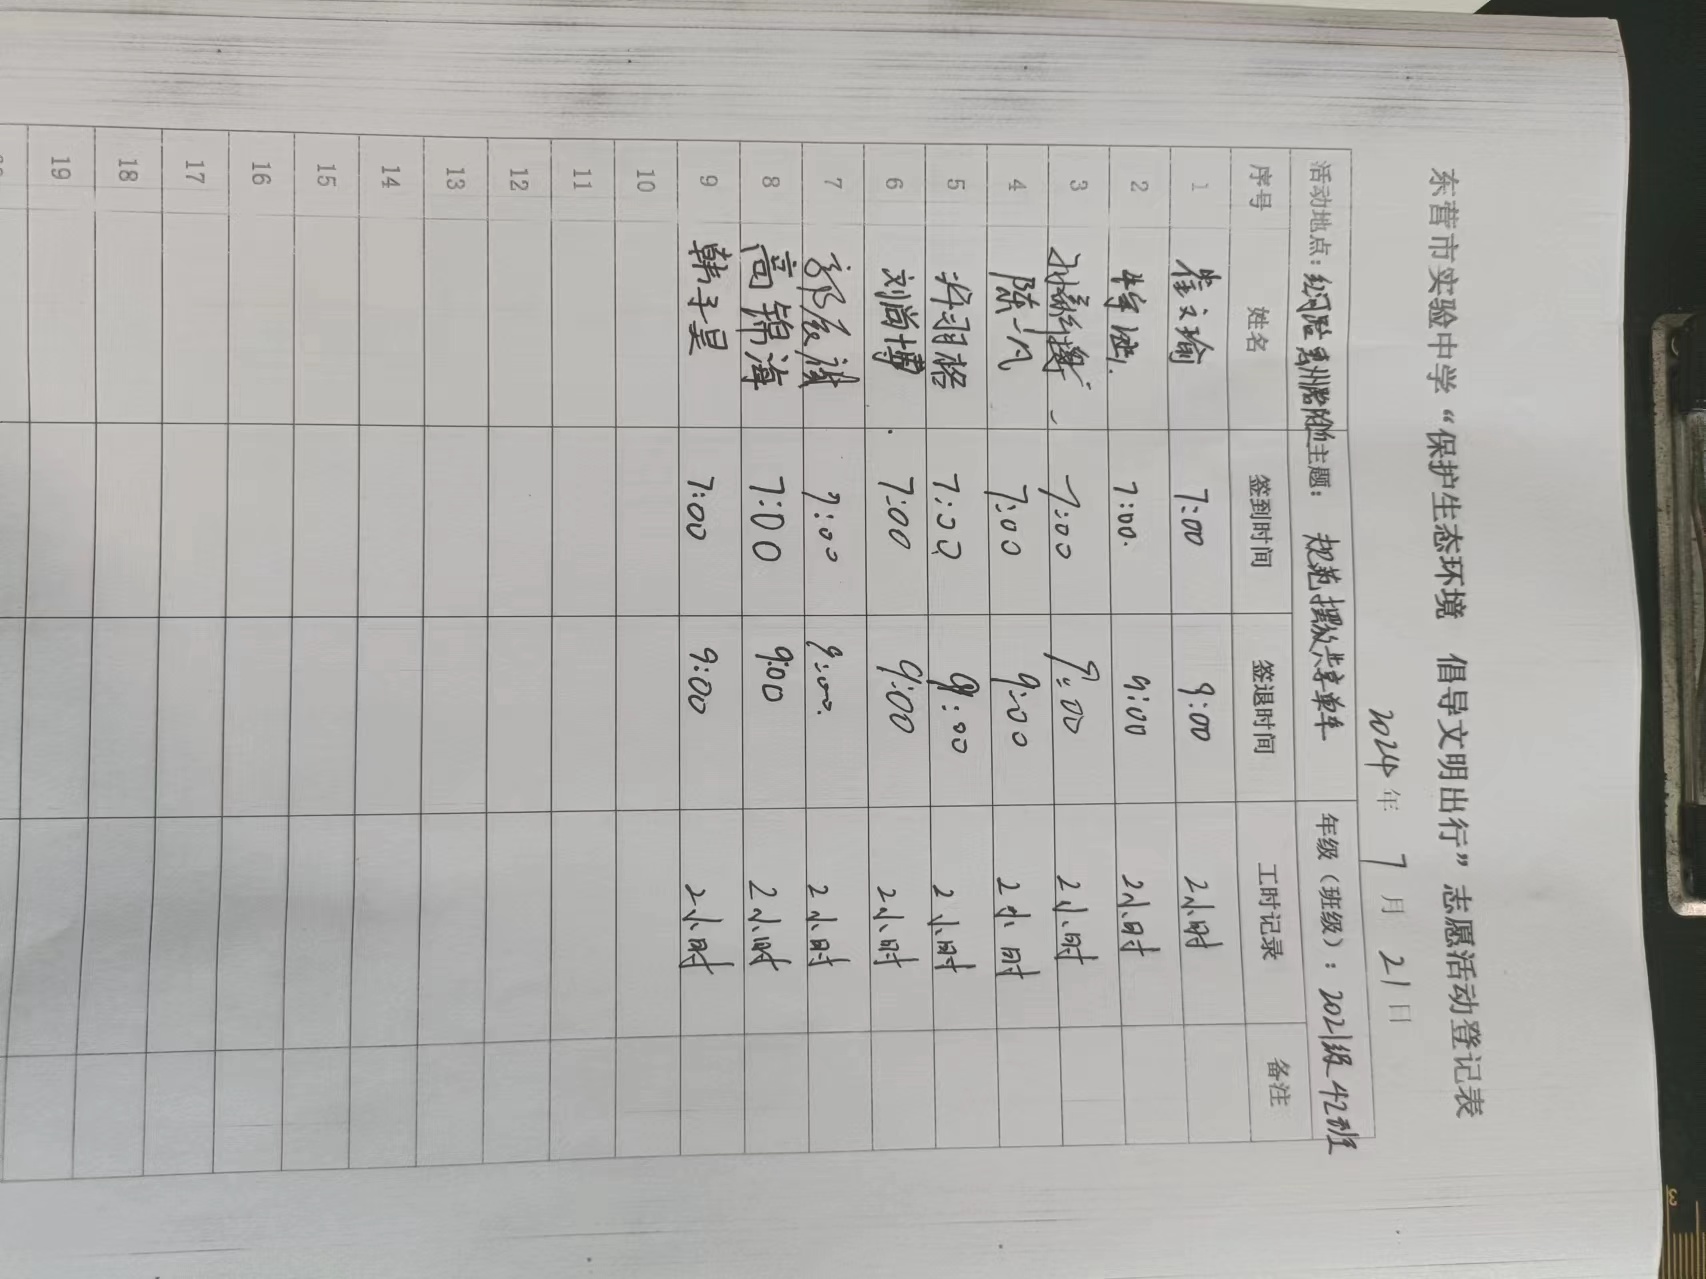 东营市实验中学“保护生态环境 倡导文明出行”志愿活动登记表
2024年 7月 21日
活动地点：红河路惠州路附近 主题： 规范摆放共享单车 年级（班级）：2021级42班
序号 姓名 签到时间 签退时间 工时记录 备注
1 崔文瑜 7:00 9:00 2小时
2 7:00. 9:00 2小时
3 7:00 9:00 2小时
4 陈一凡 7:00 9:00 2小时
5 许羽格 7:00 9:00 2小时
6 刘尚博 7:00 9:00 2小时
7 7:00 9:00. 2小时
8 高锦海 7:00 9:00 2小时
9 韩子昊 7:00 9:00 2小时
10
11
12
13
14
15
16
17
18
19
3